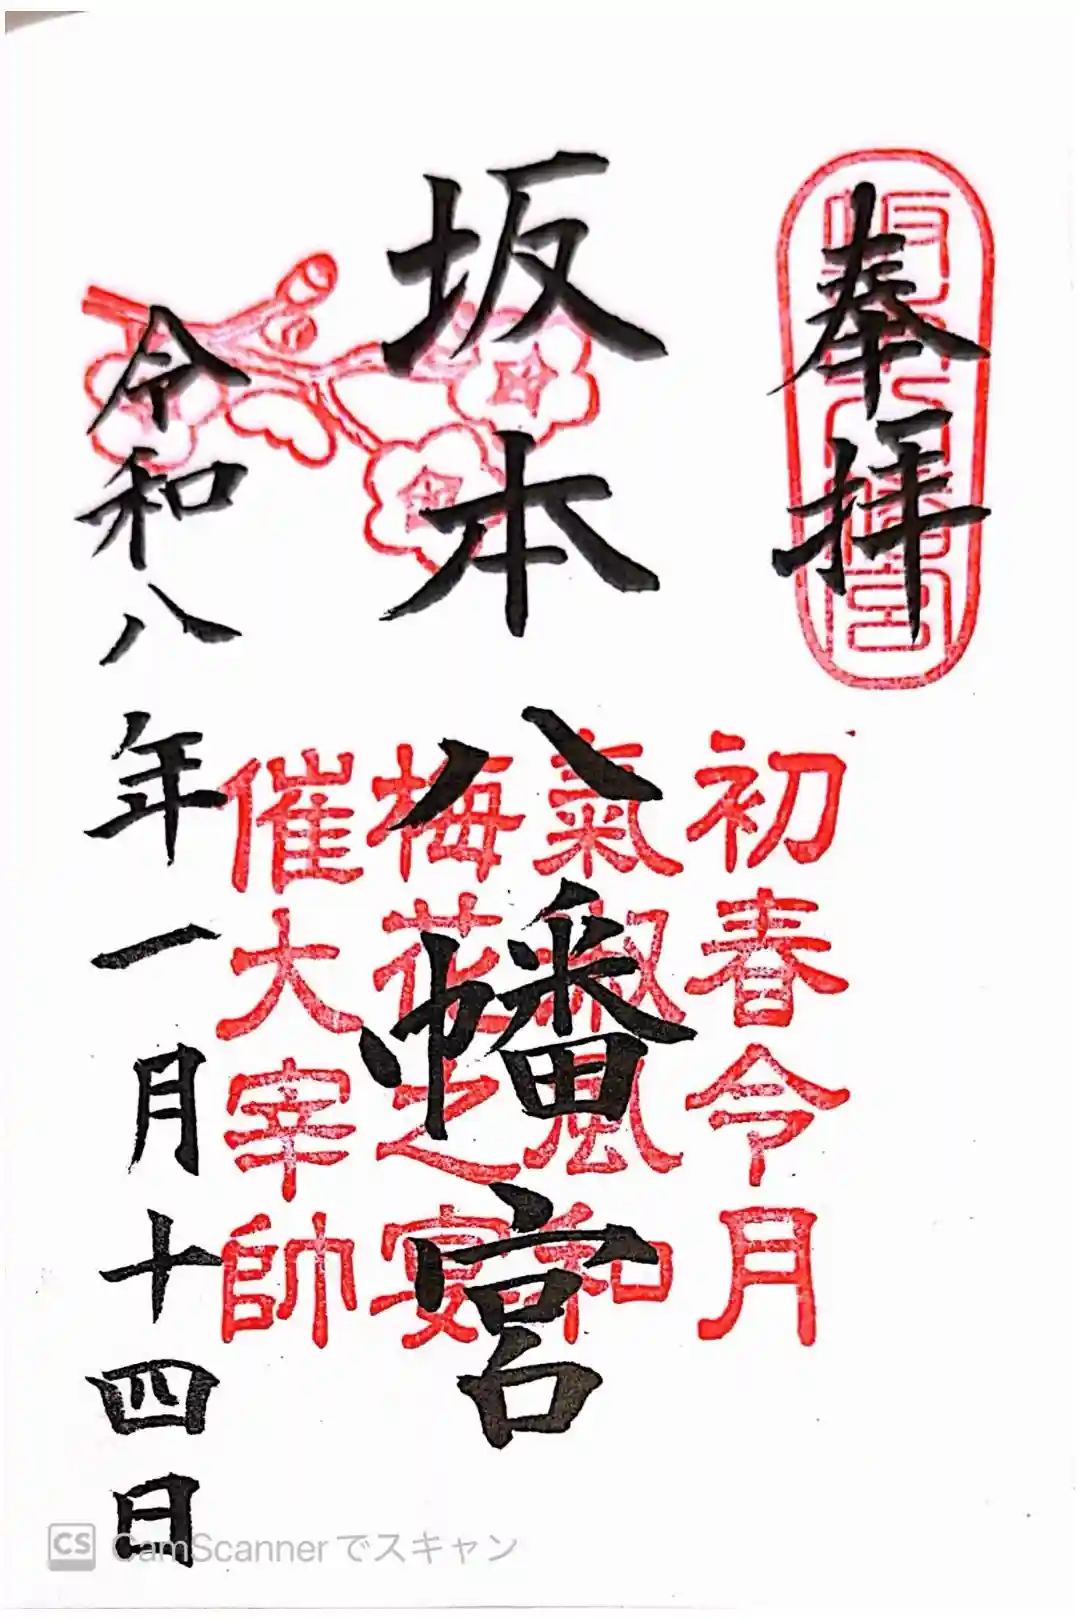 奉拝
坂本八幡宮
坂本八幡宮
初春令月
氣淑風和
梅花之宴
催大宰帥
令和八年一月十四日
CS CamScannerでスキャン